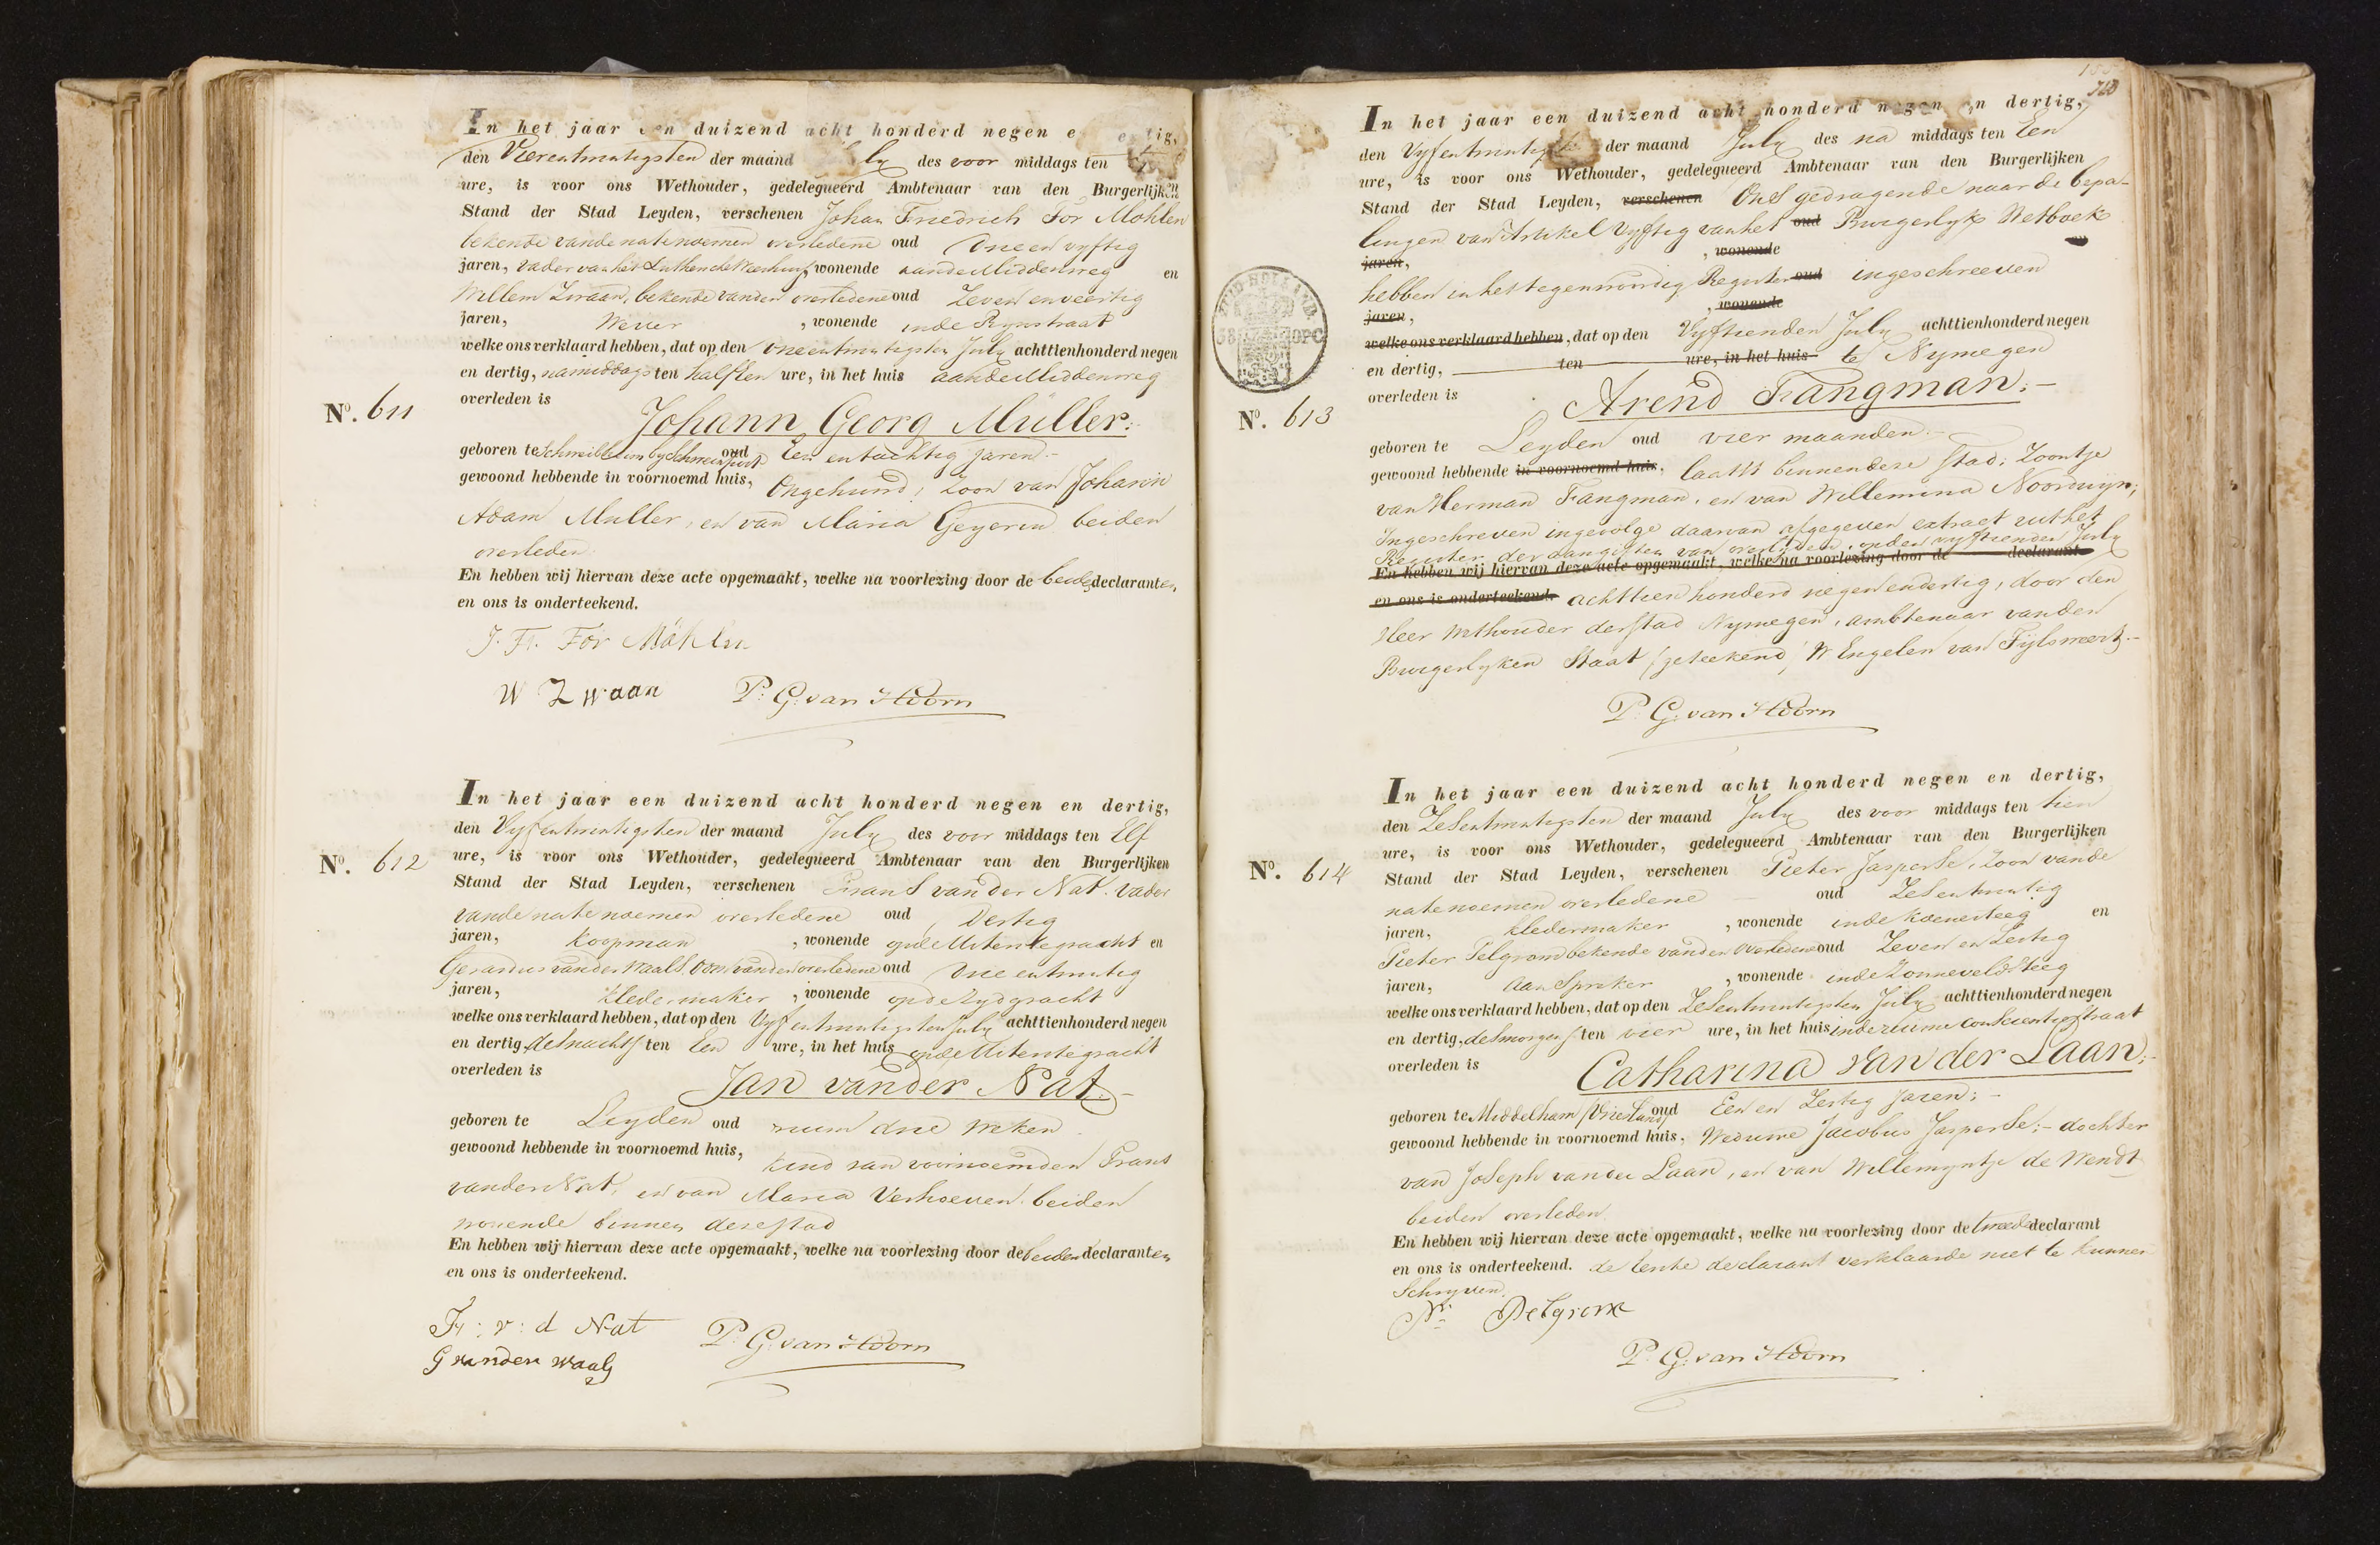 In het jaar een duizend acht honderd negen e
den Vierentwintigsten der maand ly des voor middags ten
ure, is voor ons Wethouder, gedelegueerd Ambtenaar van den Burgerlijken
Stand der Stad Leyden, verschenen Johan Friedrich For Mohlen
bekende van de natenoemen overledene oud Drie en vyftig
jaren, vader van het Luthersche Weeshuis, wonende aan de Middenweg en
Willem Zwaan, bekende van den overledene oud Zeven en veertig
jaren, Wever , wonende in de Rynstraat
welke ons verklaard hebben, dat op den Drieentwintigsten July achttienhonderd negen
en dertig, namiddags ten halftien ure, in het huis aan de Middenweg
No. 611
overleden is Johann Georg Müller.
geboren te by Schweinfurt oud Een en tachtig jaren
gewoond hebbende in voornoemd huis, Ongehuwd, zoon van Johann
Adam Muller, en van Maria Geyerin beiden
overleden.
En hebben wij hiervan deze acte opgemaakt, welke na voorlezing door de beide declaranten,
en ons is onderteekend.
J. Fr. For Mählen
W Zwaan P: G: van Hoorn
In het jaar een duizend acht honderd negen en dertig,
den Vyfentwintigsten der maand July des voor middags ten Elf
No. 612
ure, is voor ons Wethouder, gedelegueerd Ambtenaar van den Burgerlijken
Stand der Stad Leyden, verschenen Frans van der Nat. Vader
van de natenoemen overledene oud Dertig
jaren, Koopman , wonende op de Uiterstegracht en
Gerardus van der Waals, Oom van den overledene oud Drie entwintig
jaren, kledermaker , wonende op de Zydgracht
welke ons verklaard hebben, dat op den Vyfentwintigsten July achttienhonderd negen
en dertig, desnachts ten Een ure, in het huis op de Uiterstegracht
overleden is Jan van der Nat.
geboren te Leyden oud ruim drie weken
gewoond hebbende in voornoemd huis, kind van voornoemden Frans
van der Nat, en van Maria Verhoeven. beiden
wonende binnen deze stad
En hebben wij hiervan deze acte opgemaakt, welke na voorlezing door de beiden declaranten,
en ons is onderteekend.
Fr: v: d Nat P: G: van Hoorn
G van der Waals
In het jaar een duizend acht honderd negen en dertig,
den Vyfentwintigsten der maand July des na middags ten Een
ure, is voor ons Wethouder, gedelegueerd Ambtenaar van den Burgerlijken
Stand der Stad Leyden, verschenen Ons gedragende naar de bepa-
lingen van Artikel Vyftig van het oud Burgerlyk Wetboek
jaren, , wonende en
hebben in het tegenwoordig Register oud ingeschreeven
jaren, , wonende
welke ons verklaard hebben, dat op den Vyftienden July achttienhonderd negen
en dertig, ten ure, in het huis te Nymegen
ZUID-HOLLAND
38 OPC
No. 613
overleden is Arend Fangman.
geboren te Leyden oud vier maanden.
gewoond hebbende in voornoemd huis, laatst binnen deze Stad; Zoontje
van Herman Fangman, en van Willemina Noordwyn;
Ingeschreven ingevolge daarvan afgegeven extract uit het
Register der aangiften van overlyden, op den vyftienden July
En hebben wij hiervan deze acte opgemaakt, welke na voorlezing door de declarant
en ons is onderteekend. achttienhonderd negen en dertig, door den
Heer Wethouder der stad Nymegen, ambtenaar van den
Burgerlyken Staat (geteekend) W Engelen van Pylsweert.
P: G: van Hoorn
In het jaar een duizend acht honderd negen en dertig,
den Zesentwintigsten der maand July des voor middags ten tien
ure, is voor ons Wethouder, gedelegueerd Ambtenaar van den Burgerlijken
No. 614
Stand der Stad Leyden, verschenen Pieter Jasperse, Zoon van de
natenoemen overledene oud Zesentwintig
jaren, kledermaker , wonende in de Koenesteeg en
Pieter Pelgrom bekende van den overledene oud Zeven en Zestig
jaren, Aanspreker , wonende in de Zonneveldsteeg
welke ons verklaard hebben, dat op den Zesentwintigsten July achttienhonderd negen
en dertig, desmorgens ten vier ure, in het huis in de ruime Conscientiestraat
overleden is Catharina van der Laan.
geboren te Middelham (Vriesland) oud Een en Zestig jaren;
gewoond hebbende in voornoemd huis, Weduwe Jacobus Jasperse; dochter
van Joseph van der Laan, en van Willemyntje de Wendt
beiden overleden.
En hebben wij hiervan deze acte opgemaakt, welke na voorlezing door de tweede declarant
en ons is onderteekend. de eerste declarant verklaarde niet te kunnen
Schryven.
Pr. Pelgrom
P: G: van Hoorn